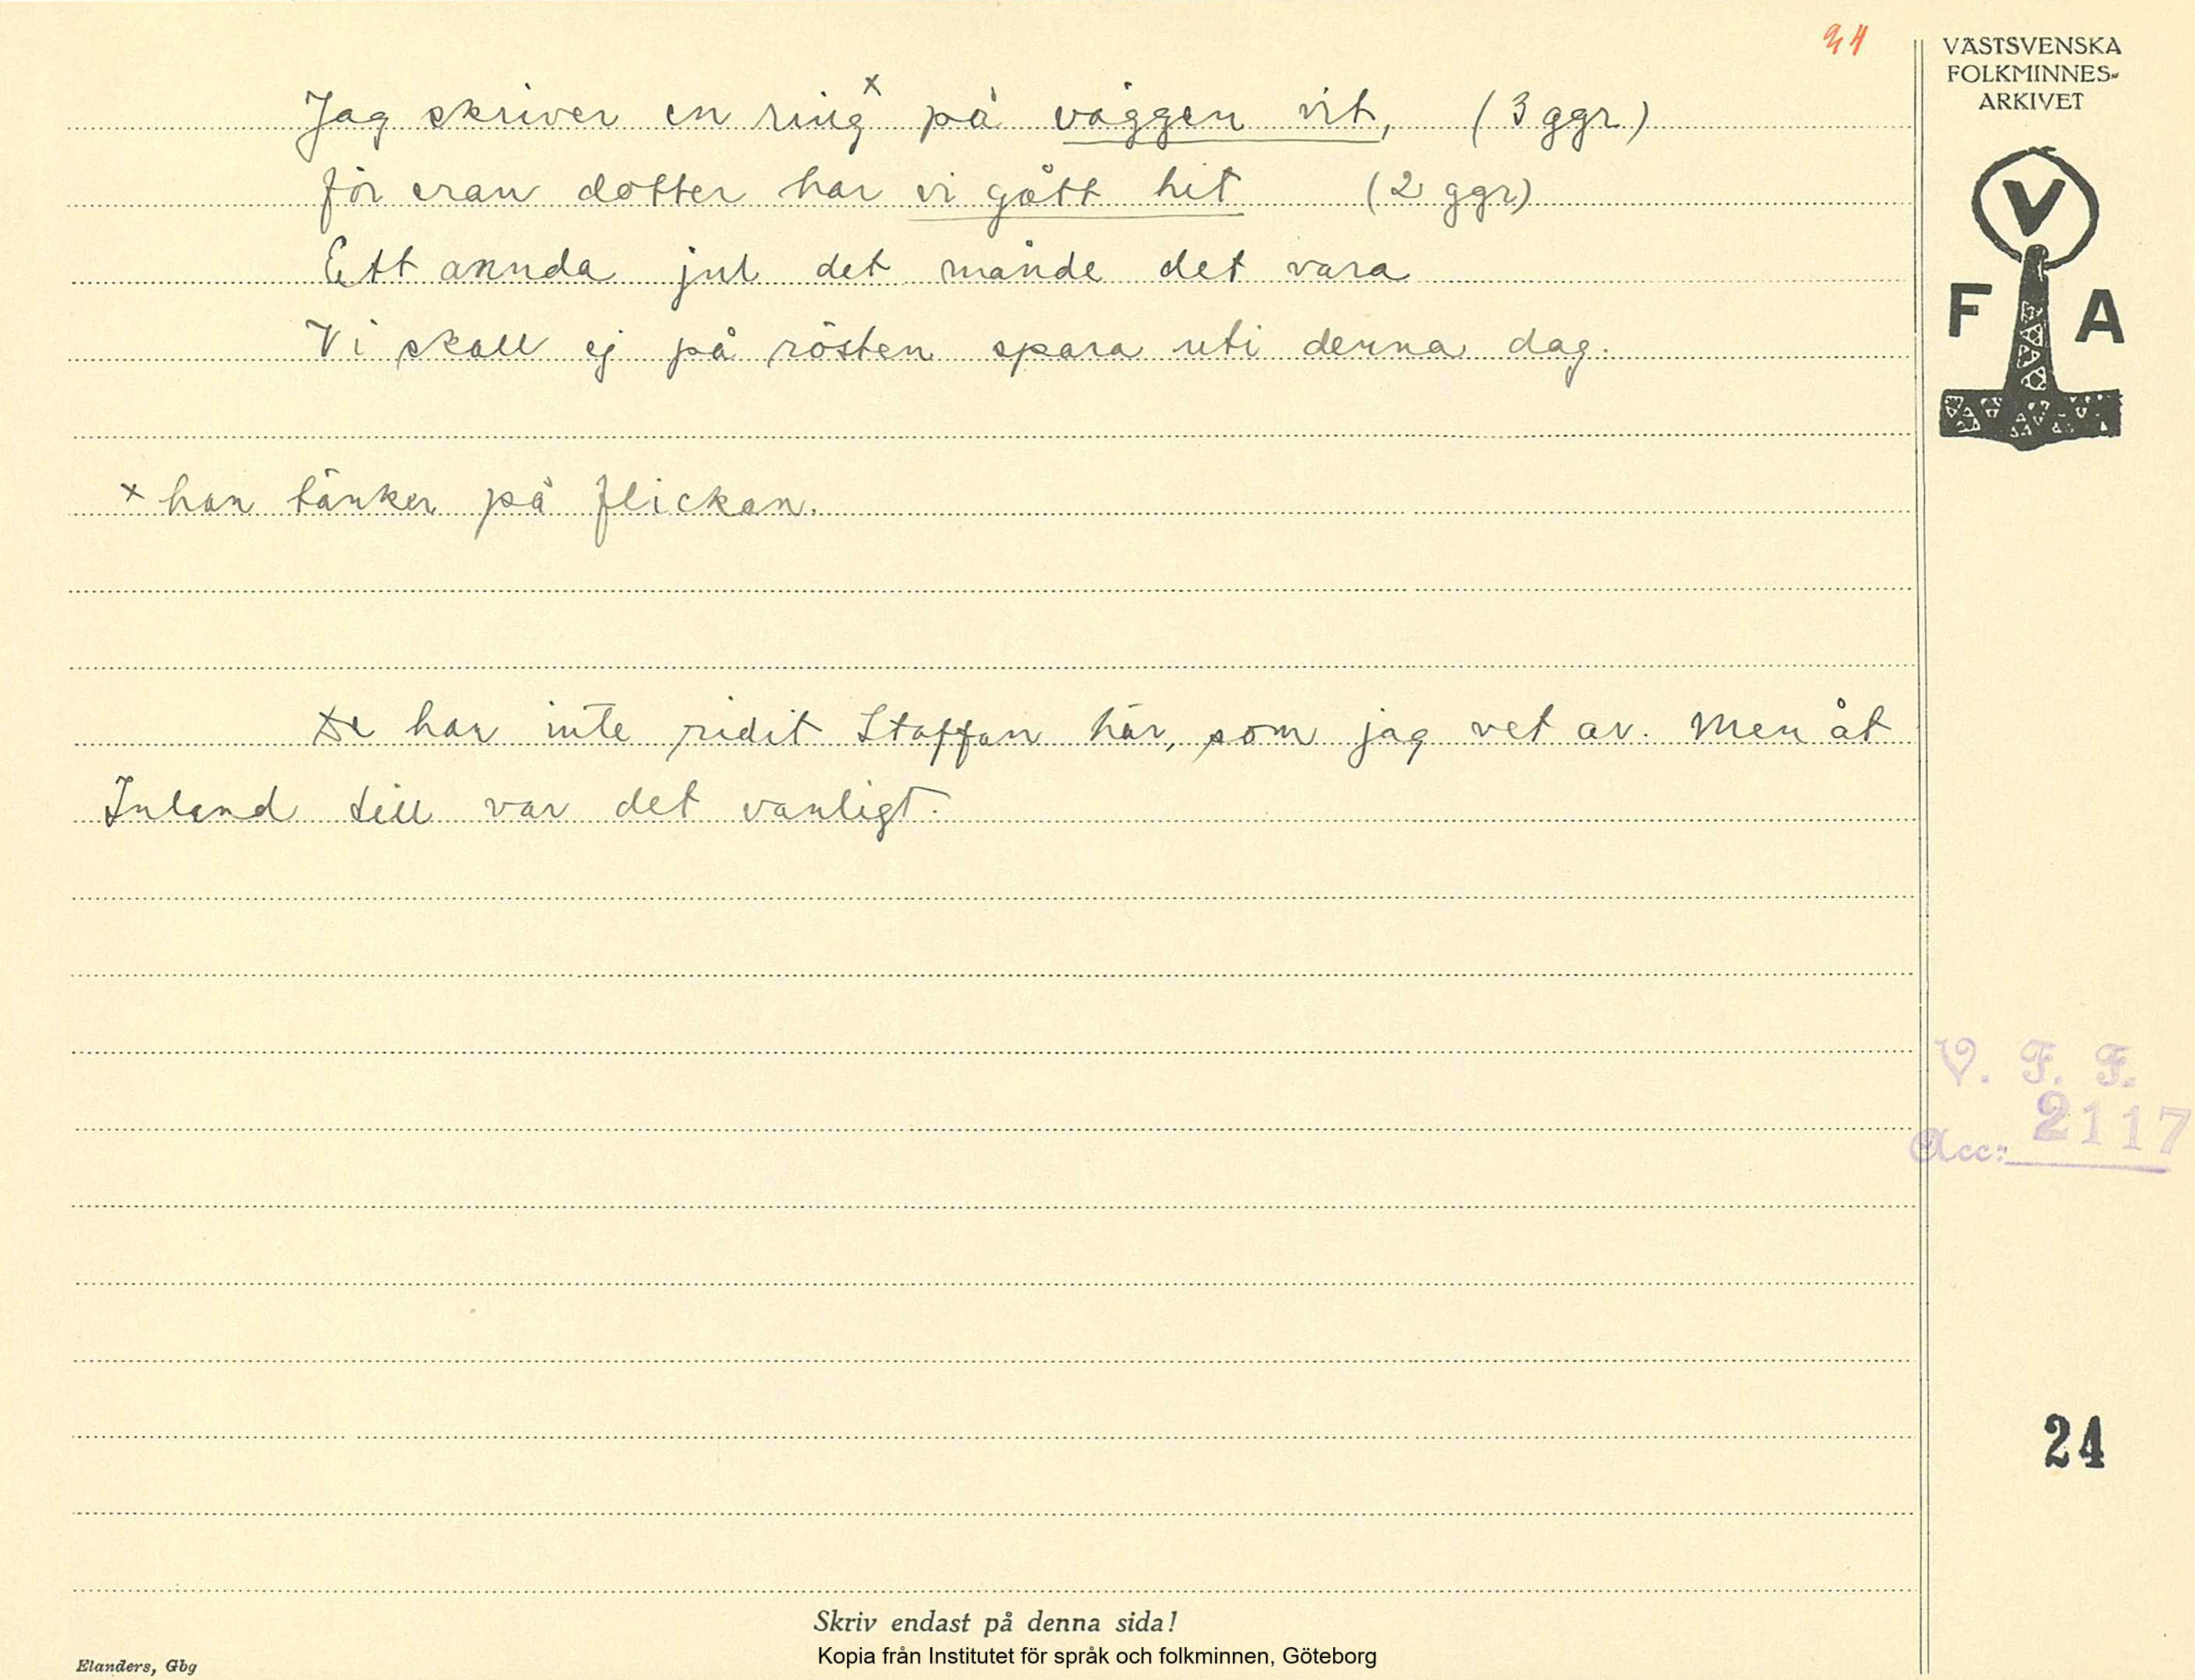 24
VÄSTSVENSKA
FOLKMINNES-
ARKIVET
V
F A
Jag skriver en ring x på väggen vit, (3 ggr)
för eran dotter har vi gått hit (2 ggr)
Ett annda jul det månde det vara
Vi skall ej på rösten spara uti denna dag.
x han tänker på flickan.
De har inte ridit Staffan här, som jag vet av. Men åt
Inland till var det vanligt.
V. F. F.
Acc: 2117
24
Skriv endast på denna sida!
Kopia från Institutet för språk och folkminnen, Göteborg
Elanders, Gbg